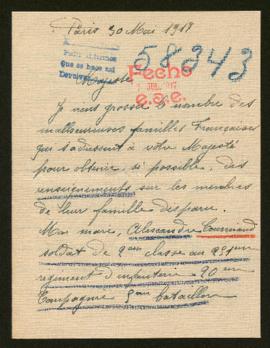 Paris 30 Mai 1917
58243
Fecho
JUL. 1917
e.s.c.
que se hace así
Majesté
Je viens grossir le nombre des
malheureuses familles Françaises
qui s'adressent à votre Majesté
pour obtenir, si possible, des
renseignements sur les membres
de leur famille disparu.
Mon mari, Alexandre
soldat de 2eme classe au
régiment d'infanterie 20em
Compagnie 5em bataillon